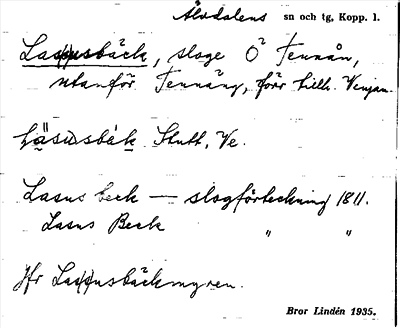 Älvdalens sn och tg, Kopp. l.
Lasusbäck, sloge Ö² Tennån,
utanför Tennäng, förr hill. Venjan.
Läsusbäk Slutt, Ve.
Lasus beck — slogförteckning 1811.
Lasus Beck " "
Jfr Lasusbäckmyren.
Bror Lindén 1935.